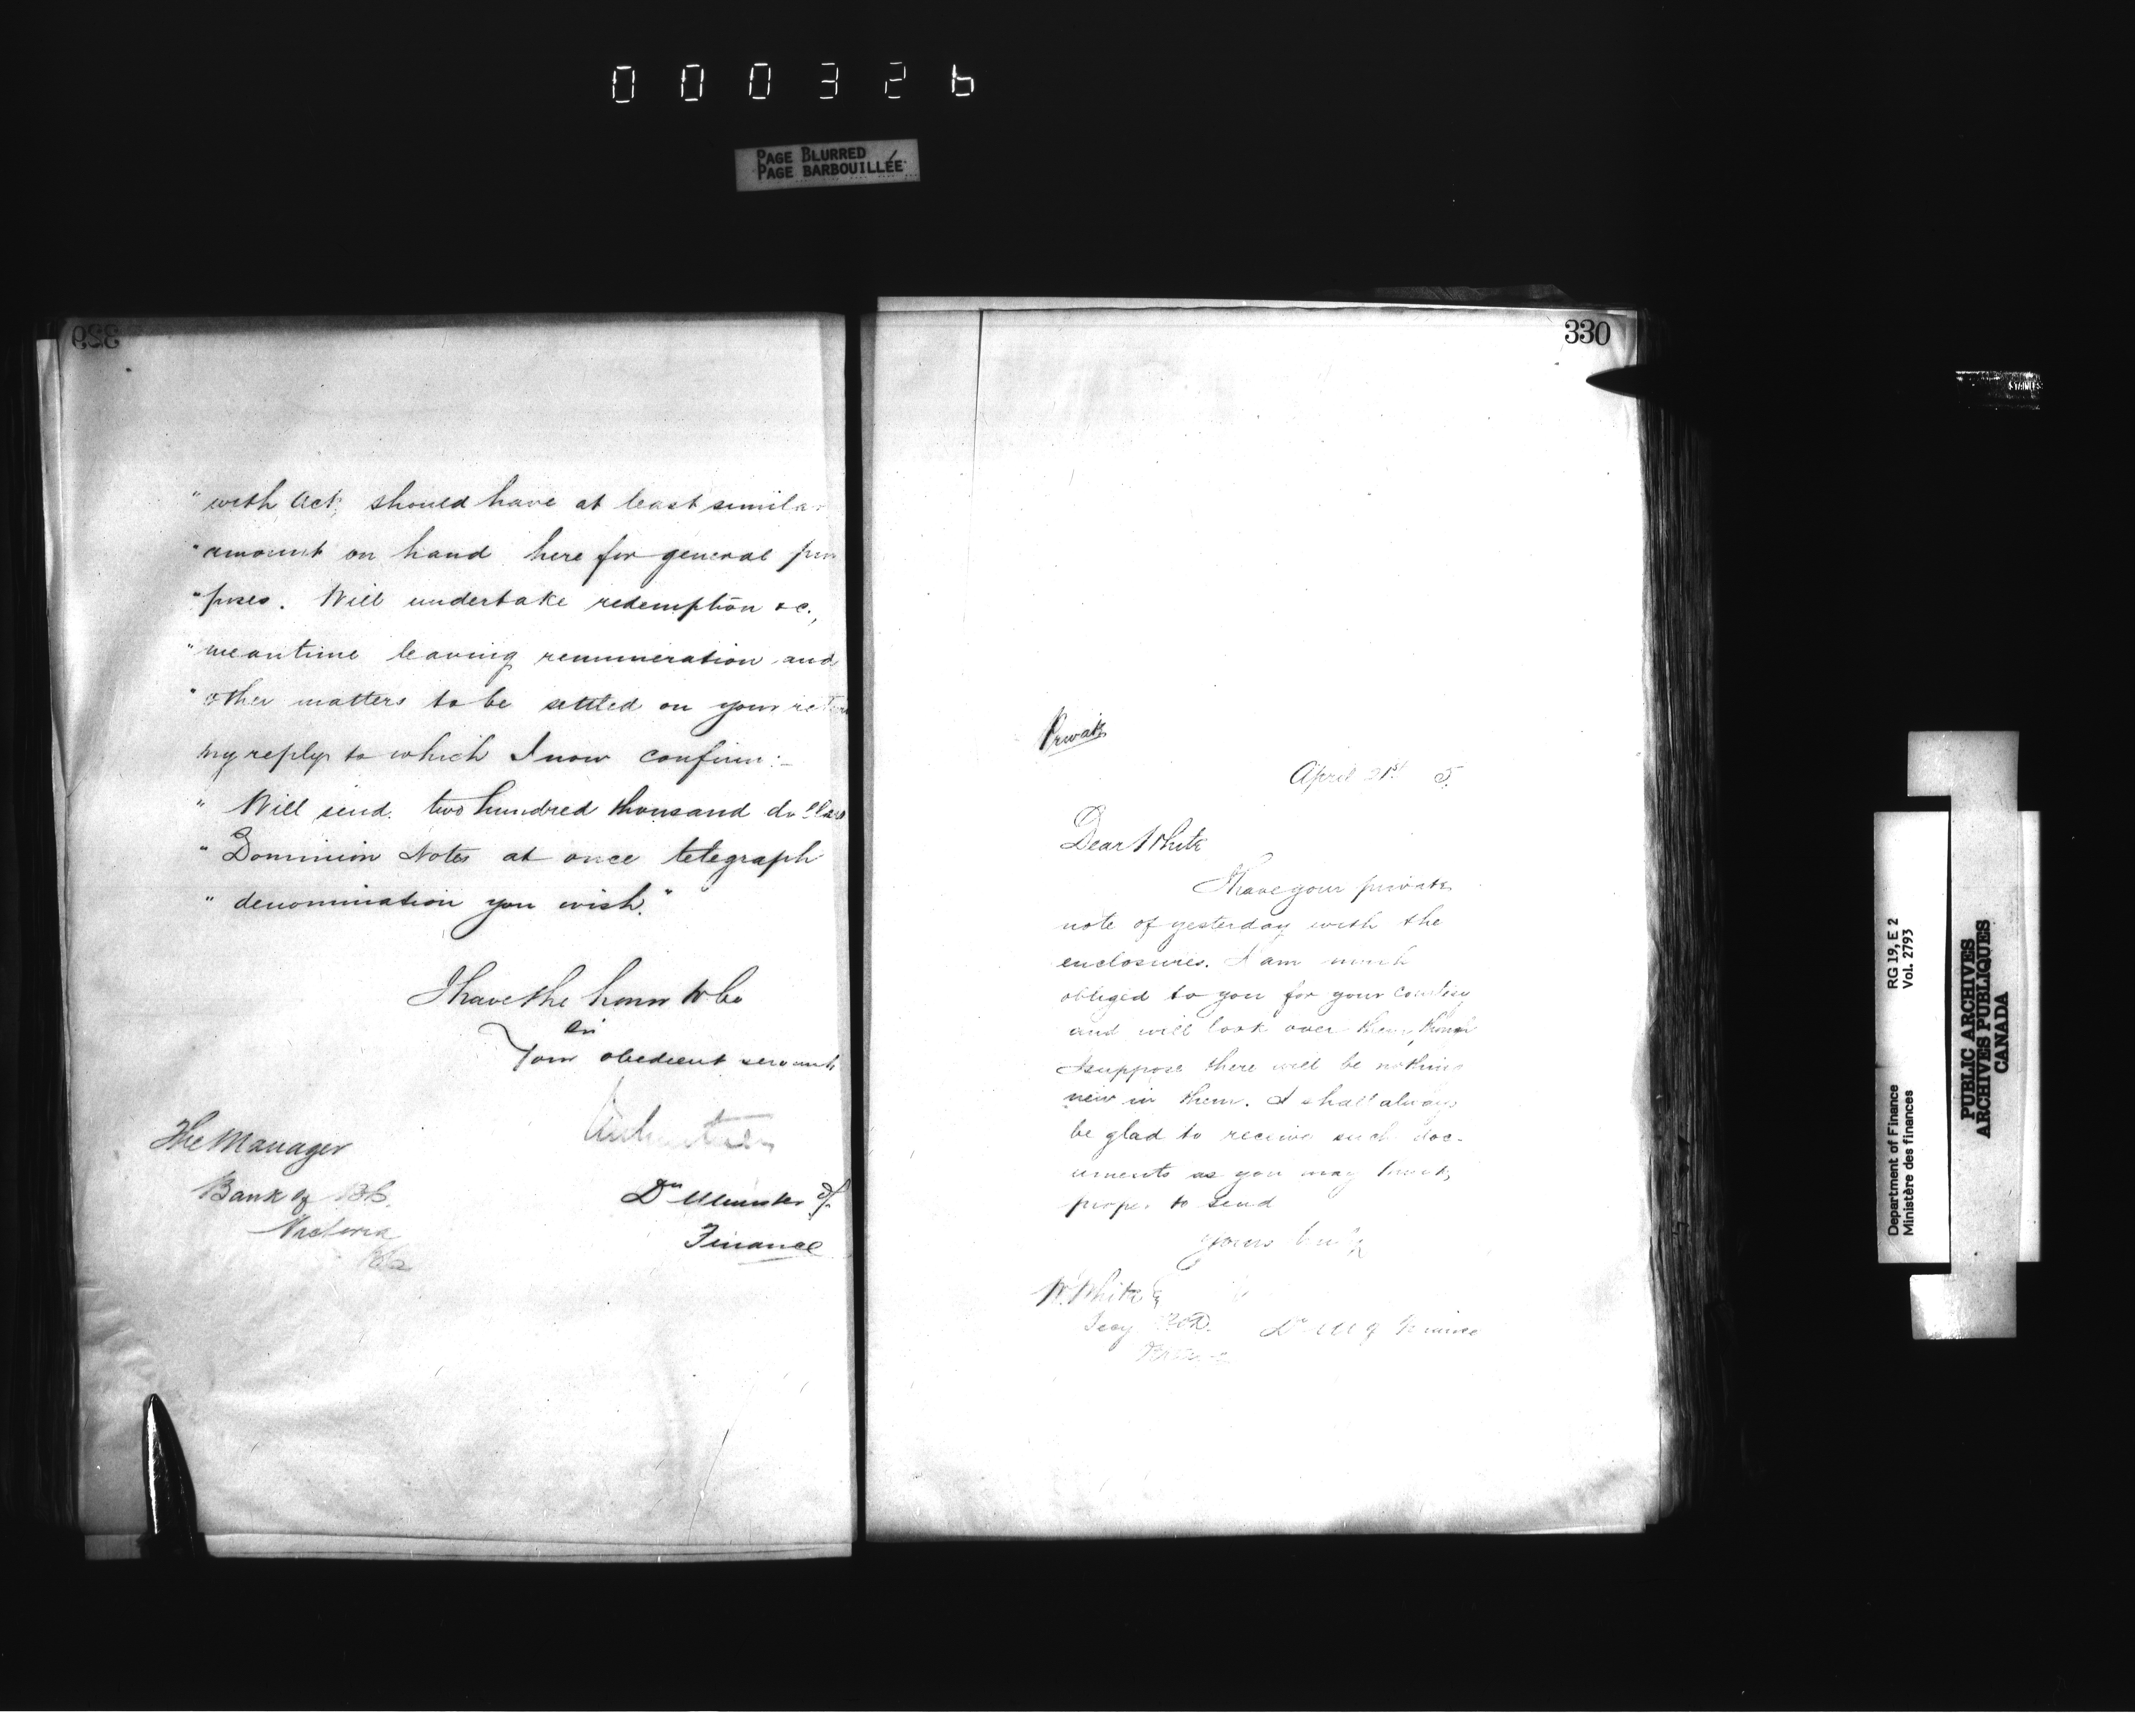 000326
PAGE BLURRED
PAGE BARBOUILLÉE
329
" with Act, should have at least similar
" amount on hand here for general pur
" poses. Will undertake redemption &c.,
" meantime leaving remuneration and
" other matters to be settled on your return
my reply to which I now confirm:-
" Will send two hundred thousand dollars
" Dominion Notes at once telegraph
" denomination you wish."
I have the honor to be
Sir
Your obedient servant
Dy Minister of
Finance
The Manager
Bank of B.C.
Victoria
B.C.
330
Private
April 21st 5.
Dear White
I have your private
note of yesterday with the
enclosures. I am much
obliged to you for your courtesy
and will look over them, though
I suppose there will be nothing
new in them. I shall always
be glad to receive such doc-
uments as you may think
proper to send
Yours truly
W. White Esq
Secy P.O.D.
D M of Finance
STAINLESS
RG 19, E 2
Vol. 2793
Department of Finance
Ministère des finances
PUBLIC ARCHIVES
ARCHIVES PUBLIQUES
CANADA